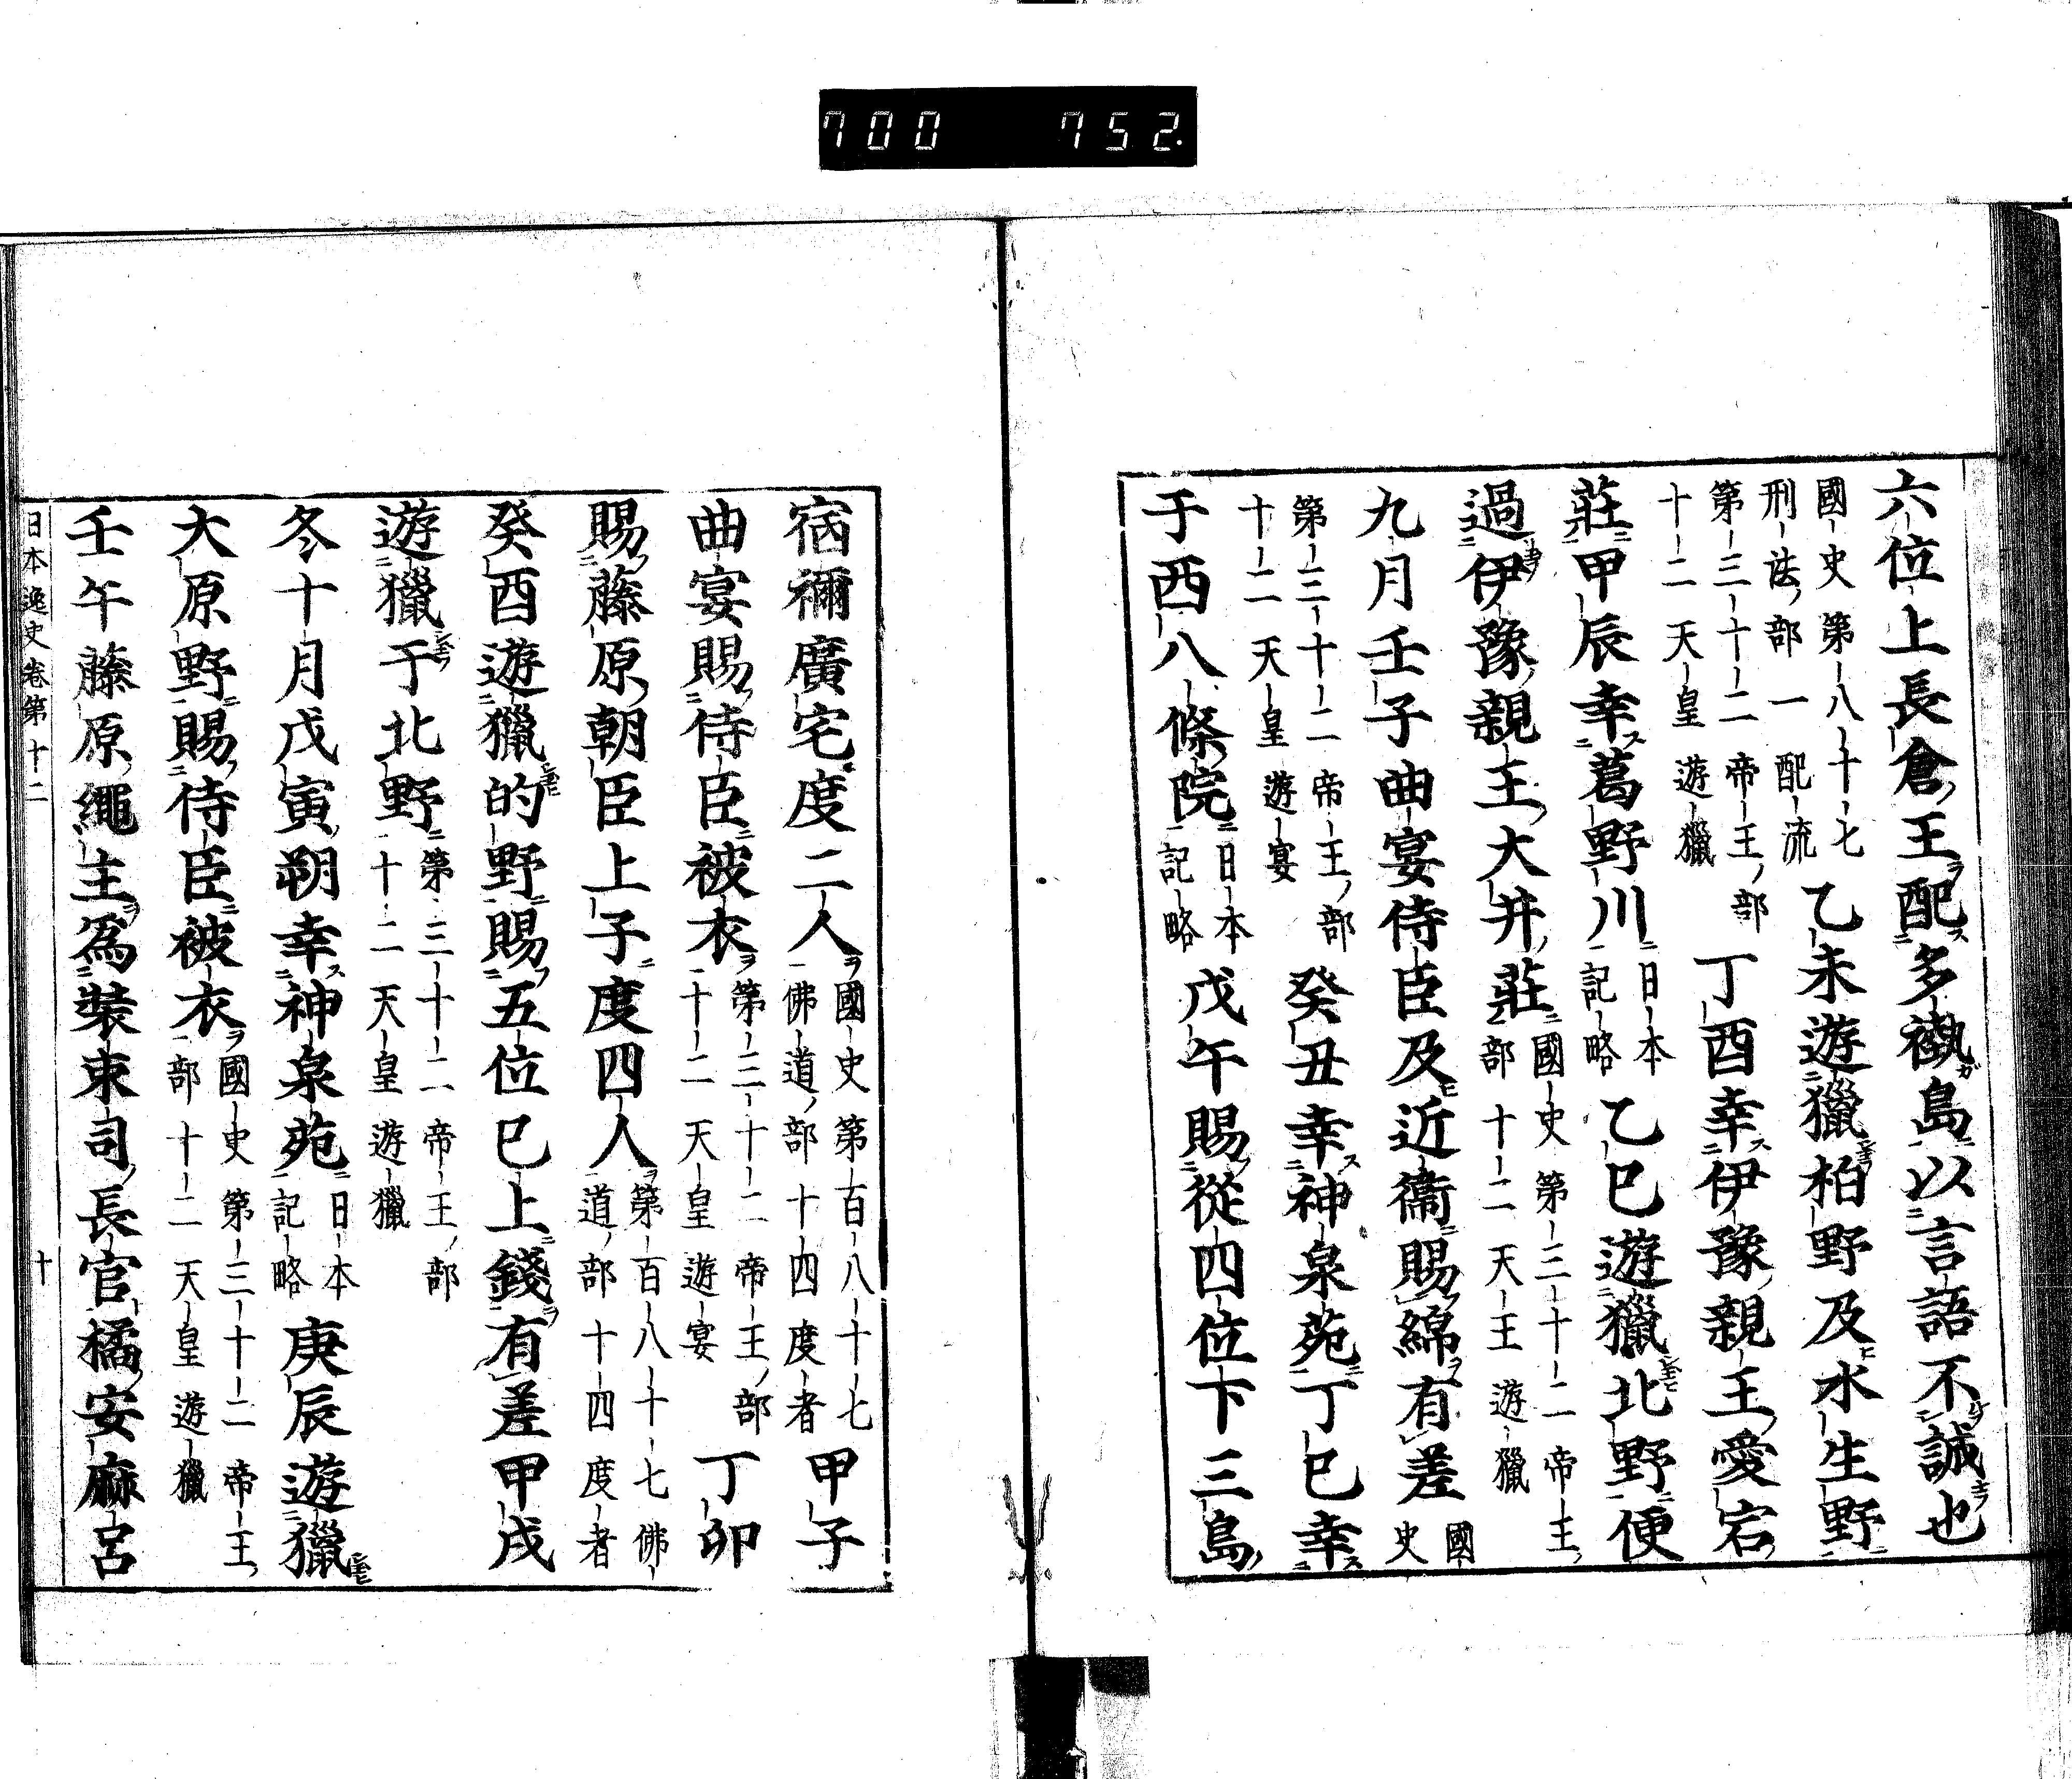 700 752.
六位上長倉王配多褹島以言語不誠也
國史第八十七刑法部一配流 乙未遊獵柏野及水生野
第三十二帝王部十二天皇遊獵 丁酉幸伊豫親王愛宕
莊甲辰幸葛野川 日本記略 乙巳遊獵北野便
過伊豫親王大井莊 國史第三十二帝王部十二天王遊獵
九月壬子曲宴侍臣及近衞賜綿有差 國史
第三十二帝王部十二天皇遊宴 癸丑幸神泉苑丁巳幸
于西八條院 日本記略 戊午賜從四位下三島
宿禰廣宅度二人 國史第百八十七佛道部十四度者 甲子
曲宴賜侍臣被衣 第三十二帝王部十二天皇遊宴 丁卯
賜藤原朝臣上子度四人 第百八十七佛道部十四度者
癸酉遊獵的野賜五位已上錢有差甲戌
遊獵于北野 第三十二帝王部十二天皇遊獵
冬十月戊寅朔幸神泉苑 日本記略 庚辰遊獵
大原野賜侍臣被衣 國史第三十二帝王部十二天皇遊獵
壬午藤原繩主爲裝束司長官橘安麻呂
日本逸史卷第十二 十